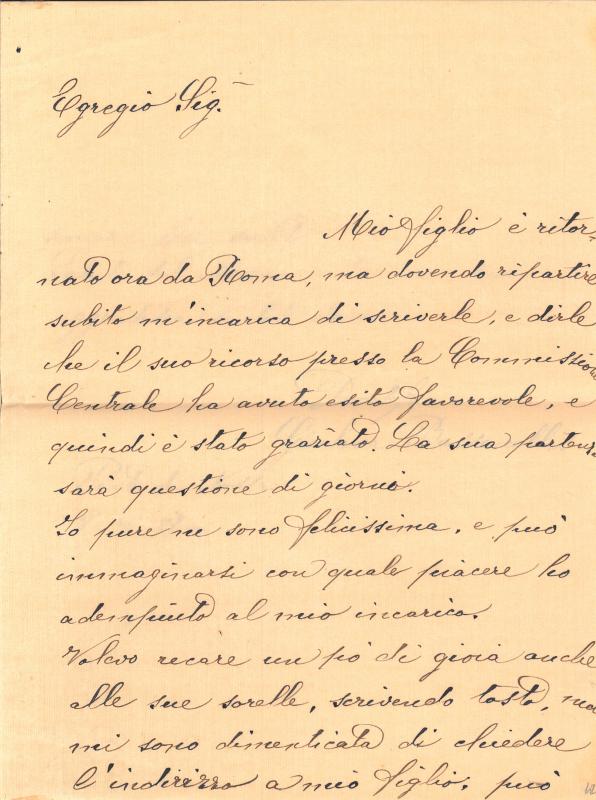 Egregio Sig.
Mio figlio è ritor-
nato ora da Roma, ma dovendo ripartire
subito m'incarica di scriverle, e dirle
che il suo ricorso presso la Commissione
Centrale ha avuto esito favorevole, e
quindi è stato graziato. La sua partenza
sarà questione di giorni.
Io pure ne sono felicissima, e può
immaginarsi con quale piacere ho
adempiuto al mio incarico.
Volevo recare un pò di gioia anche
alle sue sorelle, scrivendo tosto, ma
mi sono dimenticata di chiedere
l'indirizzo a mio figlio. può